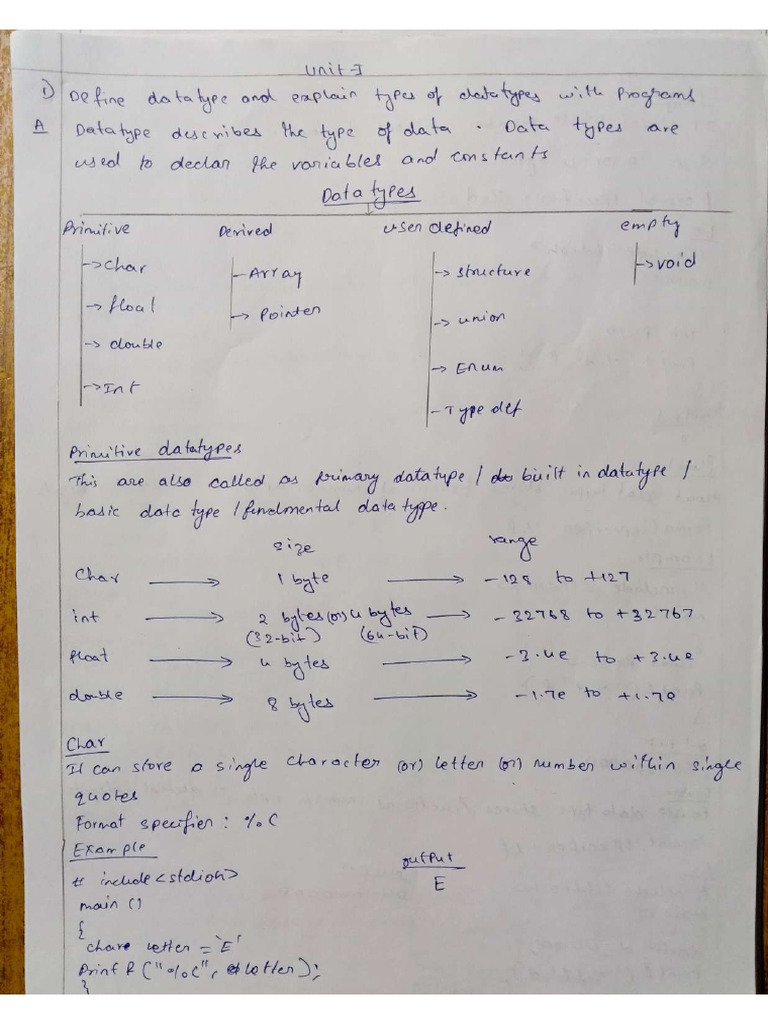 Unit-I
1) Define datatype and explain types of datatypes with programs
A Datatype describes the type of data . Data types are
used to declar the variables and constants
Data types
Primitive Derived user defined empty
→ char - Array → structure → void
→ float → Pointer → union
→ double → Enum
→ Int - Type def
Primitive datatypes
This are also called as primary datatype / built in datatype /
basic data type / fundmental data type.
size range
Char → 1 byte → -128 to +127
int → 2 bytes (or) 4 bytes → -32768 to +32767
(32-bit) (64-bit)
float → 4 bytes → -3.4e to +3.4e
double → 8 bytes → -1.7e to +1.7e
Char
It can store a single character (or) letter (or) number within single
quotes
Format specifier : %c
Example output
# include <stdioh> E
main ()
{
char letter = 'E'
Printf ("%c", letter);
}